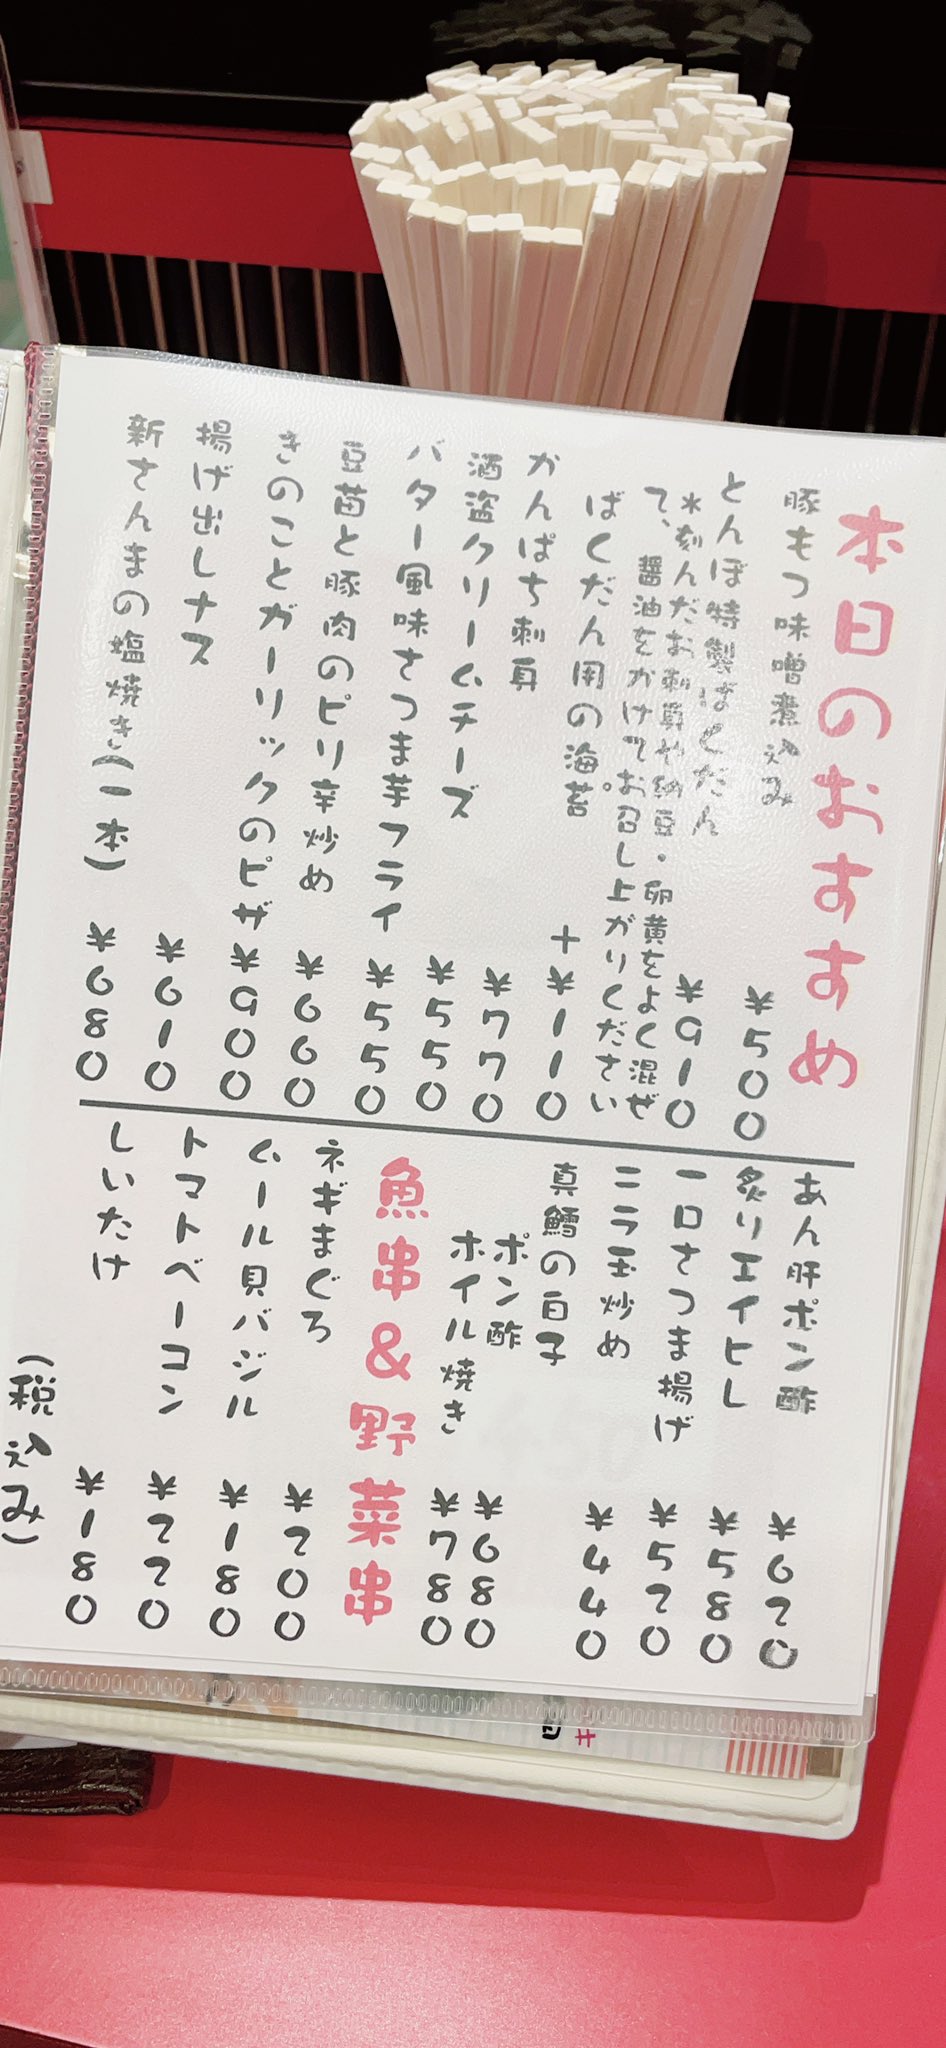 本日のおすすめ
豚もつ味噌煮込み ¥500
とんぼ特製ばくだん ¥910
*刻んだお刺身や納豆・卵黄をよく混ぜ
て、醤油をかけてお召し上がりください。
ばくだん用の海苔 +¥110
かんぱち刺身 ¥770
酒盗クリームチーズ ¥550
バター風味さつま芋フライ ¥550
豆苗と豚肉のピリ辛炒め ¥660
きのことガーリックのピザ ¥900
揚げ出しナス ¥610
新さんまの塩焼き(一本) ¥680
あん肝ポン酢 ¥620
炙りエイヒレ ¥580
一口さつま揚げ ¥520
ニラ玉炒め ¥440
真鱈の白子
ポン酢 ¥680
ホイル焼き ¥780
魚串&野菜串
ネギまぐろ ¥200
ムール貝バジル ¥180
トマトベーコン ¥220
しいたけ ¥180
(税込み)